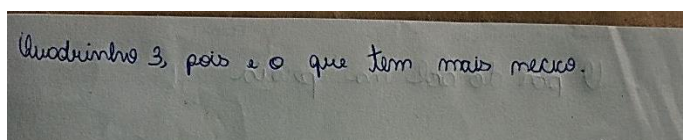 Quadrinho 3, pois e o que tem mais necico.